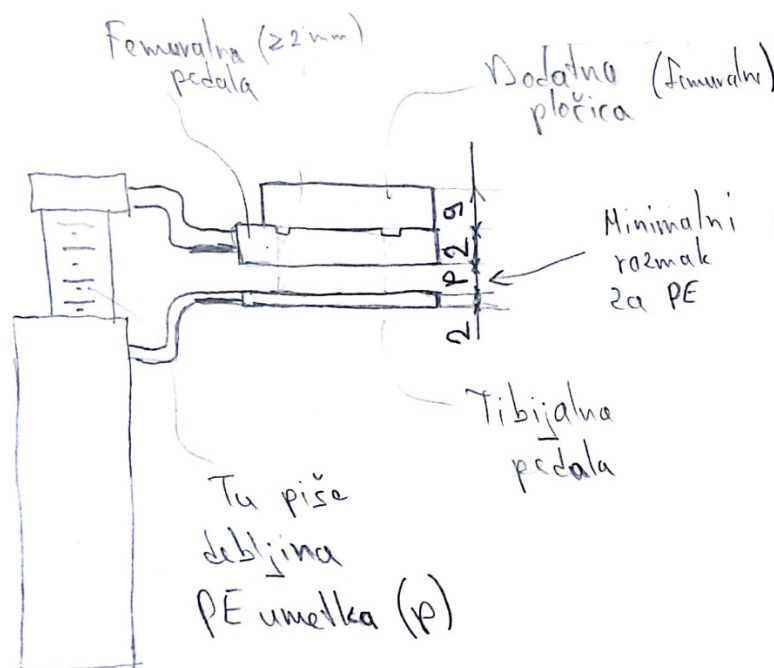 Femuralna (≥2mm)
pedala
Dodatna (femuralna)
pločica
9
2
P
2
Minimalni
razmak
za PE
Tibijalna
pedala
Tu piše
debljina
PE umetka (p)